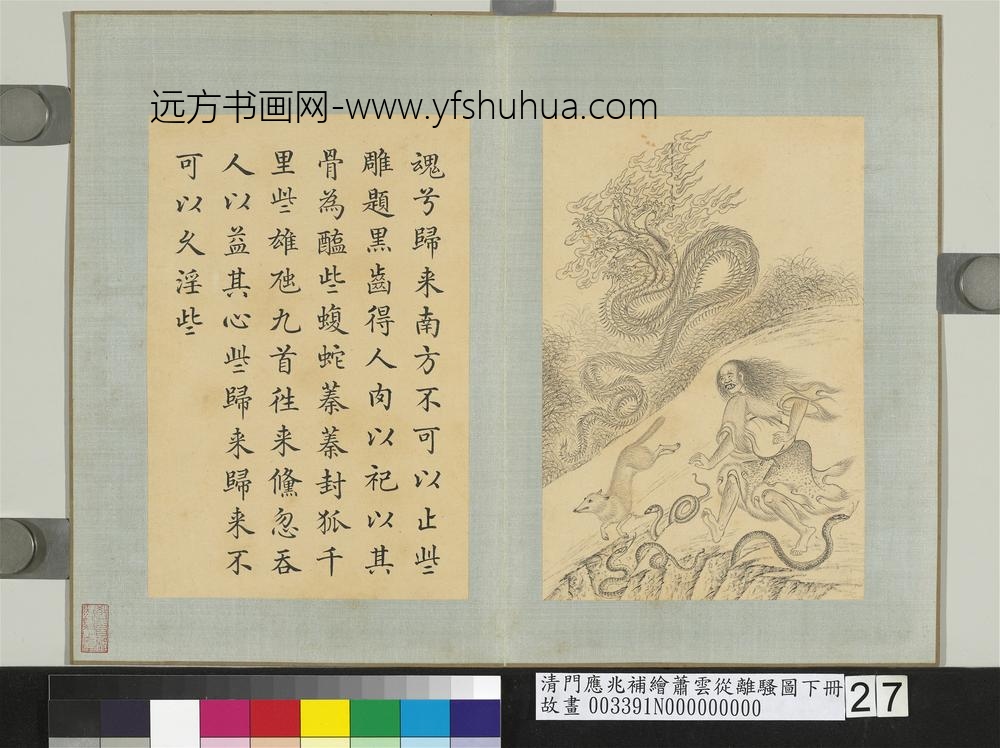 远方书画网-www.yfshuhua.com
魂兮歸来南方不可以止些
雕題黒齒得人肉以祀以其
骨為醢些蝮蛇蓁蓁封狐千
里些雄虺九首往来儵忽吞
人以益其心些歸来歸来不
可以久淫些
清門應兆補繪蕭雲從離騷圖下冊
故畫 003391N000000000
27